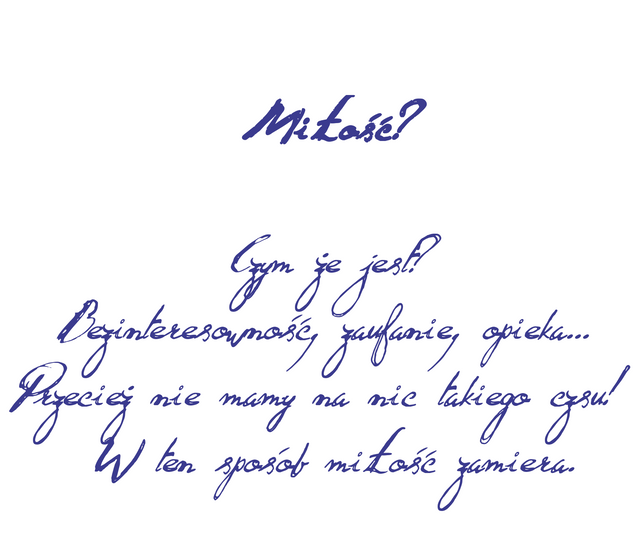 Miłość?
Czym że jest?
Bezinteresowność, zaufanie, opieka...
Przecież nie mamy na nic takiego czsu!
W ten sposób miłość zamiera.